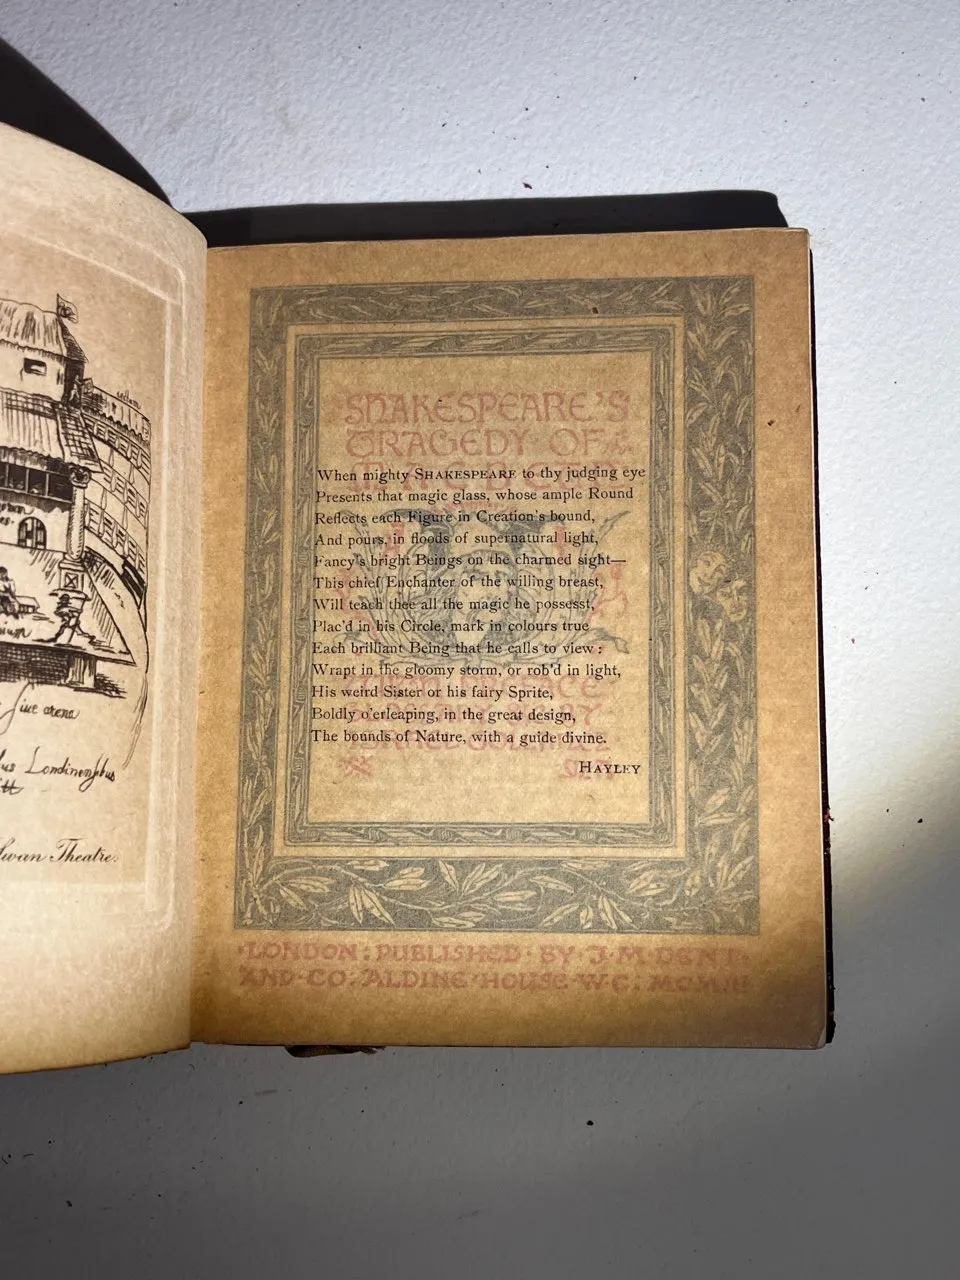 arena
Londinensibus
Swan Theatre.
SHAKESPEARE'S
TRAGEDY OF
When mighty SHAKESPEARE to thy judging eye
Presents that magic glass, whose ample Round
Reflects each Figure in Creation's bound,
And pours, in floods of supernatural light,
Fancy's bright Beings on the charmed sight—
This chief Enchanter of the willing breast,
Will teach thee all the magic he possesst,
Plac'd in his Circle, mark in colours true
Each brilliant Being that he calls to view :
Wrapt in the gloomy storm, or rob'd in light,
His weird Sister or his fairy Sprite,
Boldly o'erleaping, in the great design,
The bounds of Nature, with a guide divine.
HAYLEY
·LONDON:PUBLISHED·BY·J·M·DENT·
AND·CO:ALDINE·HOUSE·W·C: